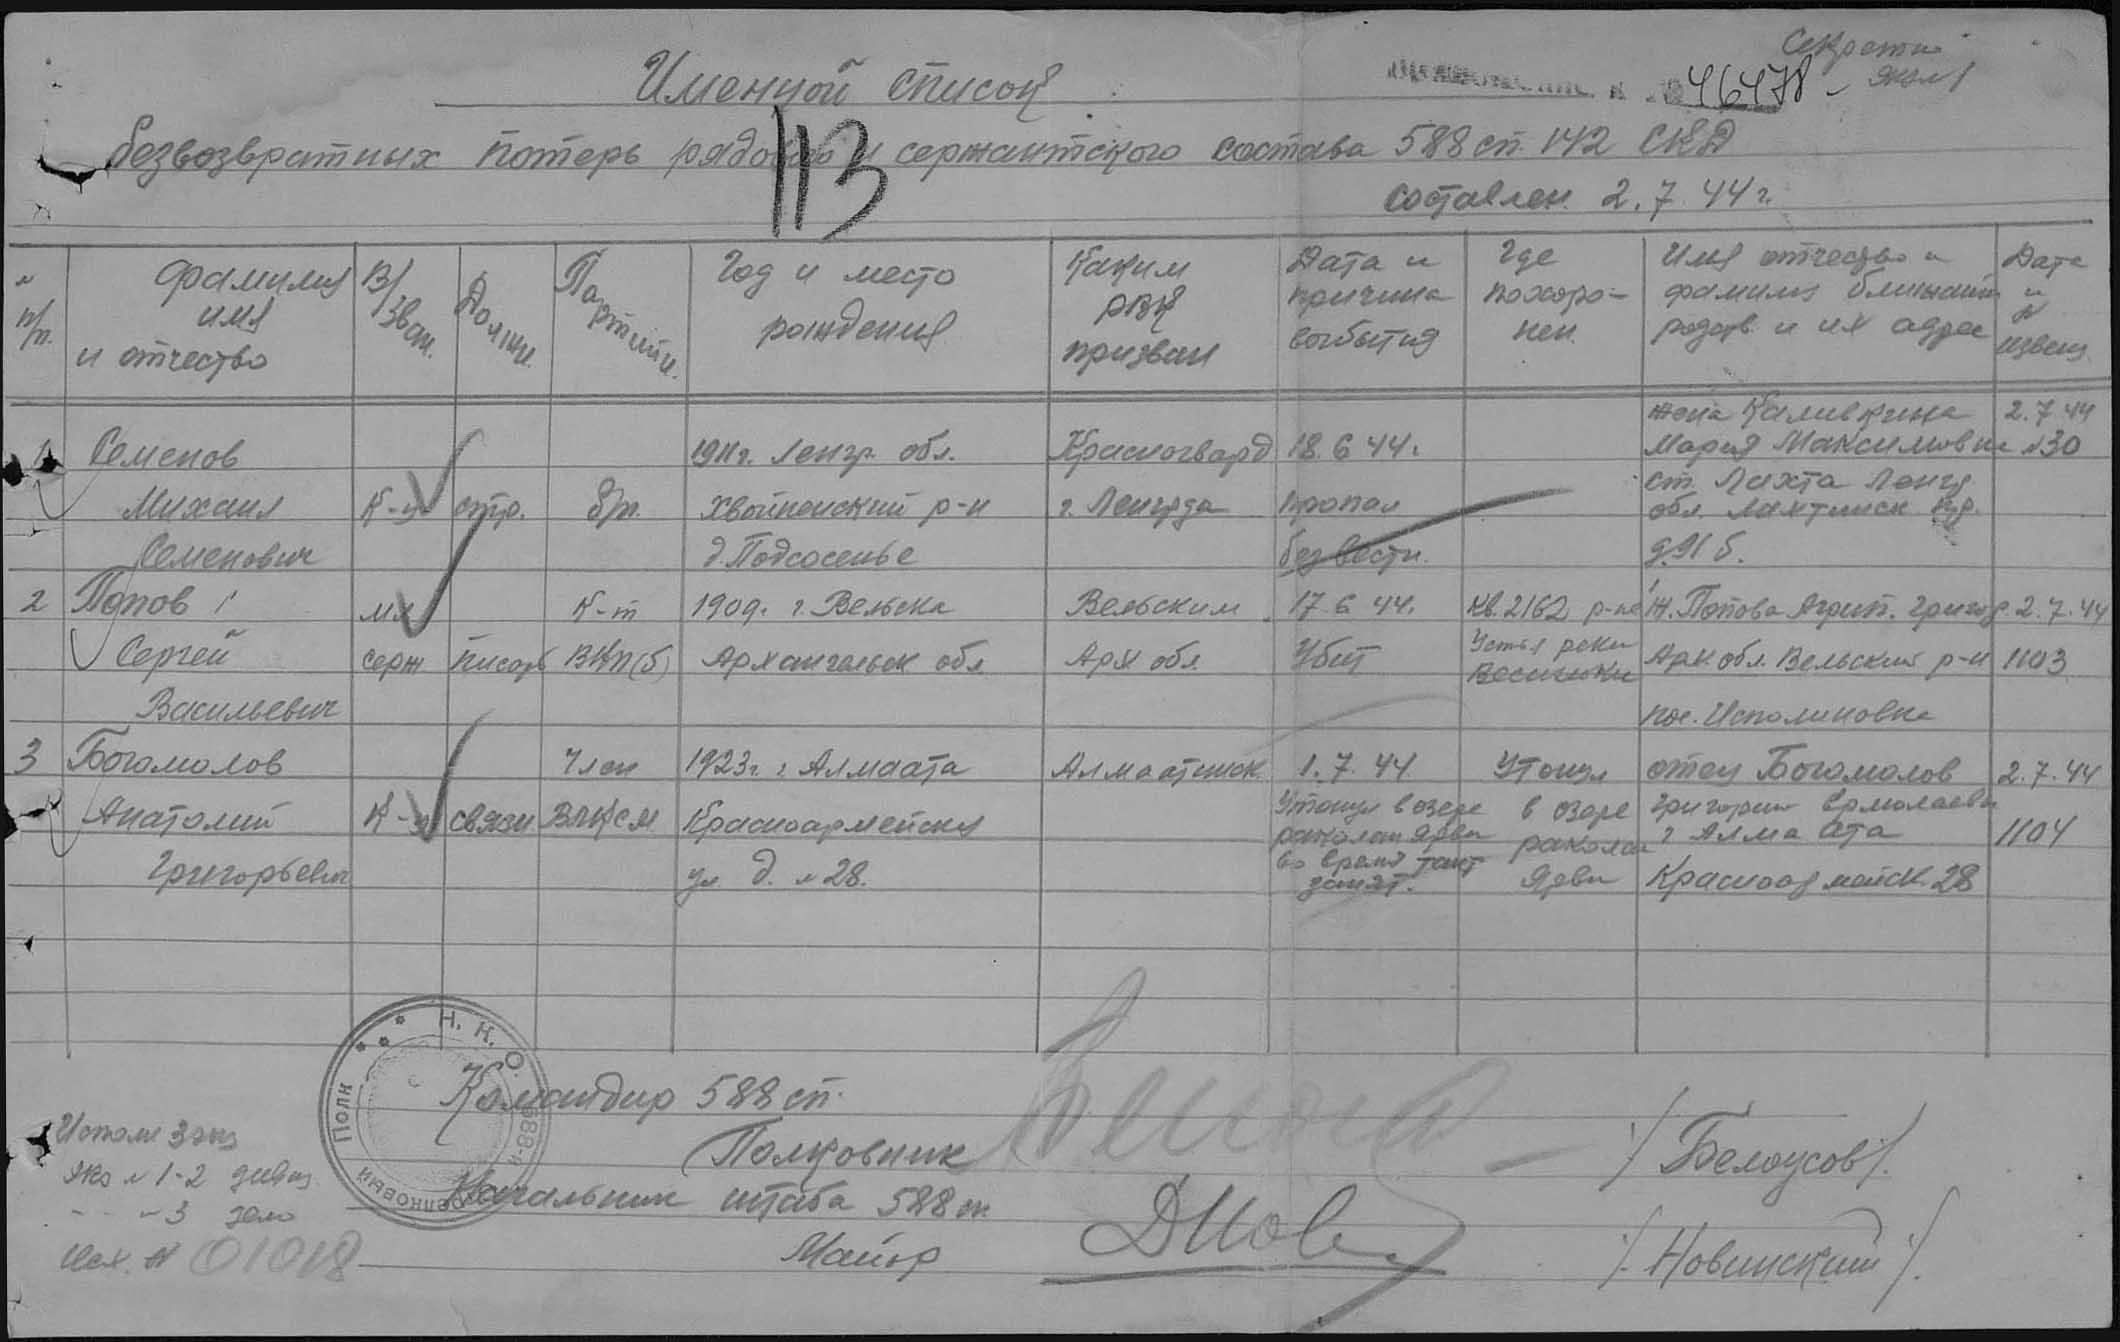 Секретно
Именной список
46478
безвозвратных потерь рядового и сержантского состава 588 сп 142 СКД
113
составлен 2.7.44 г.
№ п/п.
Фамилия имя и отчество
В/зван.
Должн.
Партийн.
Год и место рождения
Каким РВК призван
Дата и причина события
Где похоро-нен
Имя отчество и фамилия ближайш родств. и их адрес
Дата и № извещ.
жена Каливкина 2.7.44
1 Семенов 1911 г. Ленгр. обл. Красногвард 18.6.44. Мария Максимовна №30
ст. Лахта Ленгр
Михаил К-ц отр. б/п. Хвойненский р-н г. Ленгрда пропал обл. Лахтинск пр.
Семенович д. Подсосенье без вести. д. 91 б.
2 Попов мл К-т 1909. г. Вельска Вельским 17.6.44. кв. 2162 р-не Ж. Попова Агрип. Григор. 2.7.44
Сергей серж писарь ВКП(б) Архангельск обл. Арх обл. Убит Устья реки Арх. обл. Вельский р-н 1103
Васильевич пос. Исполиновка
3 Богомолов Член 1923 г. г Алмаата Алмаатинск 1.7.44 Утонул отец Богомолов 2.7.44
Анатолий К-ц связи ВЛКСМ Красноармейская Утонул в озере в озере Григорий Ермолаеви
г Алма Ата 1104
Григорьевич ул. д. № 28. во время такт занят. Ярви Красноармейск 28
Н. К. О.
588-й
Стрелковый
Полк
Командир 588 сп.
Полковник /Белоусов/.
Начальник штаба 588 сп
Майор /Новинский/.
Исполн 3 экз
экз № 1-2 дивиз
- " - 3 дело
Исх. № 01018